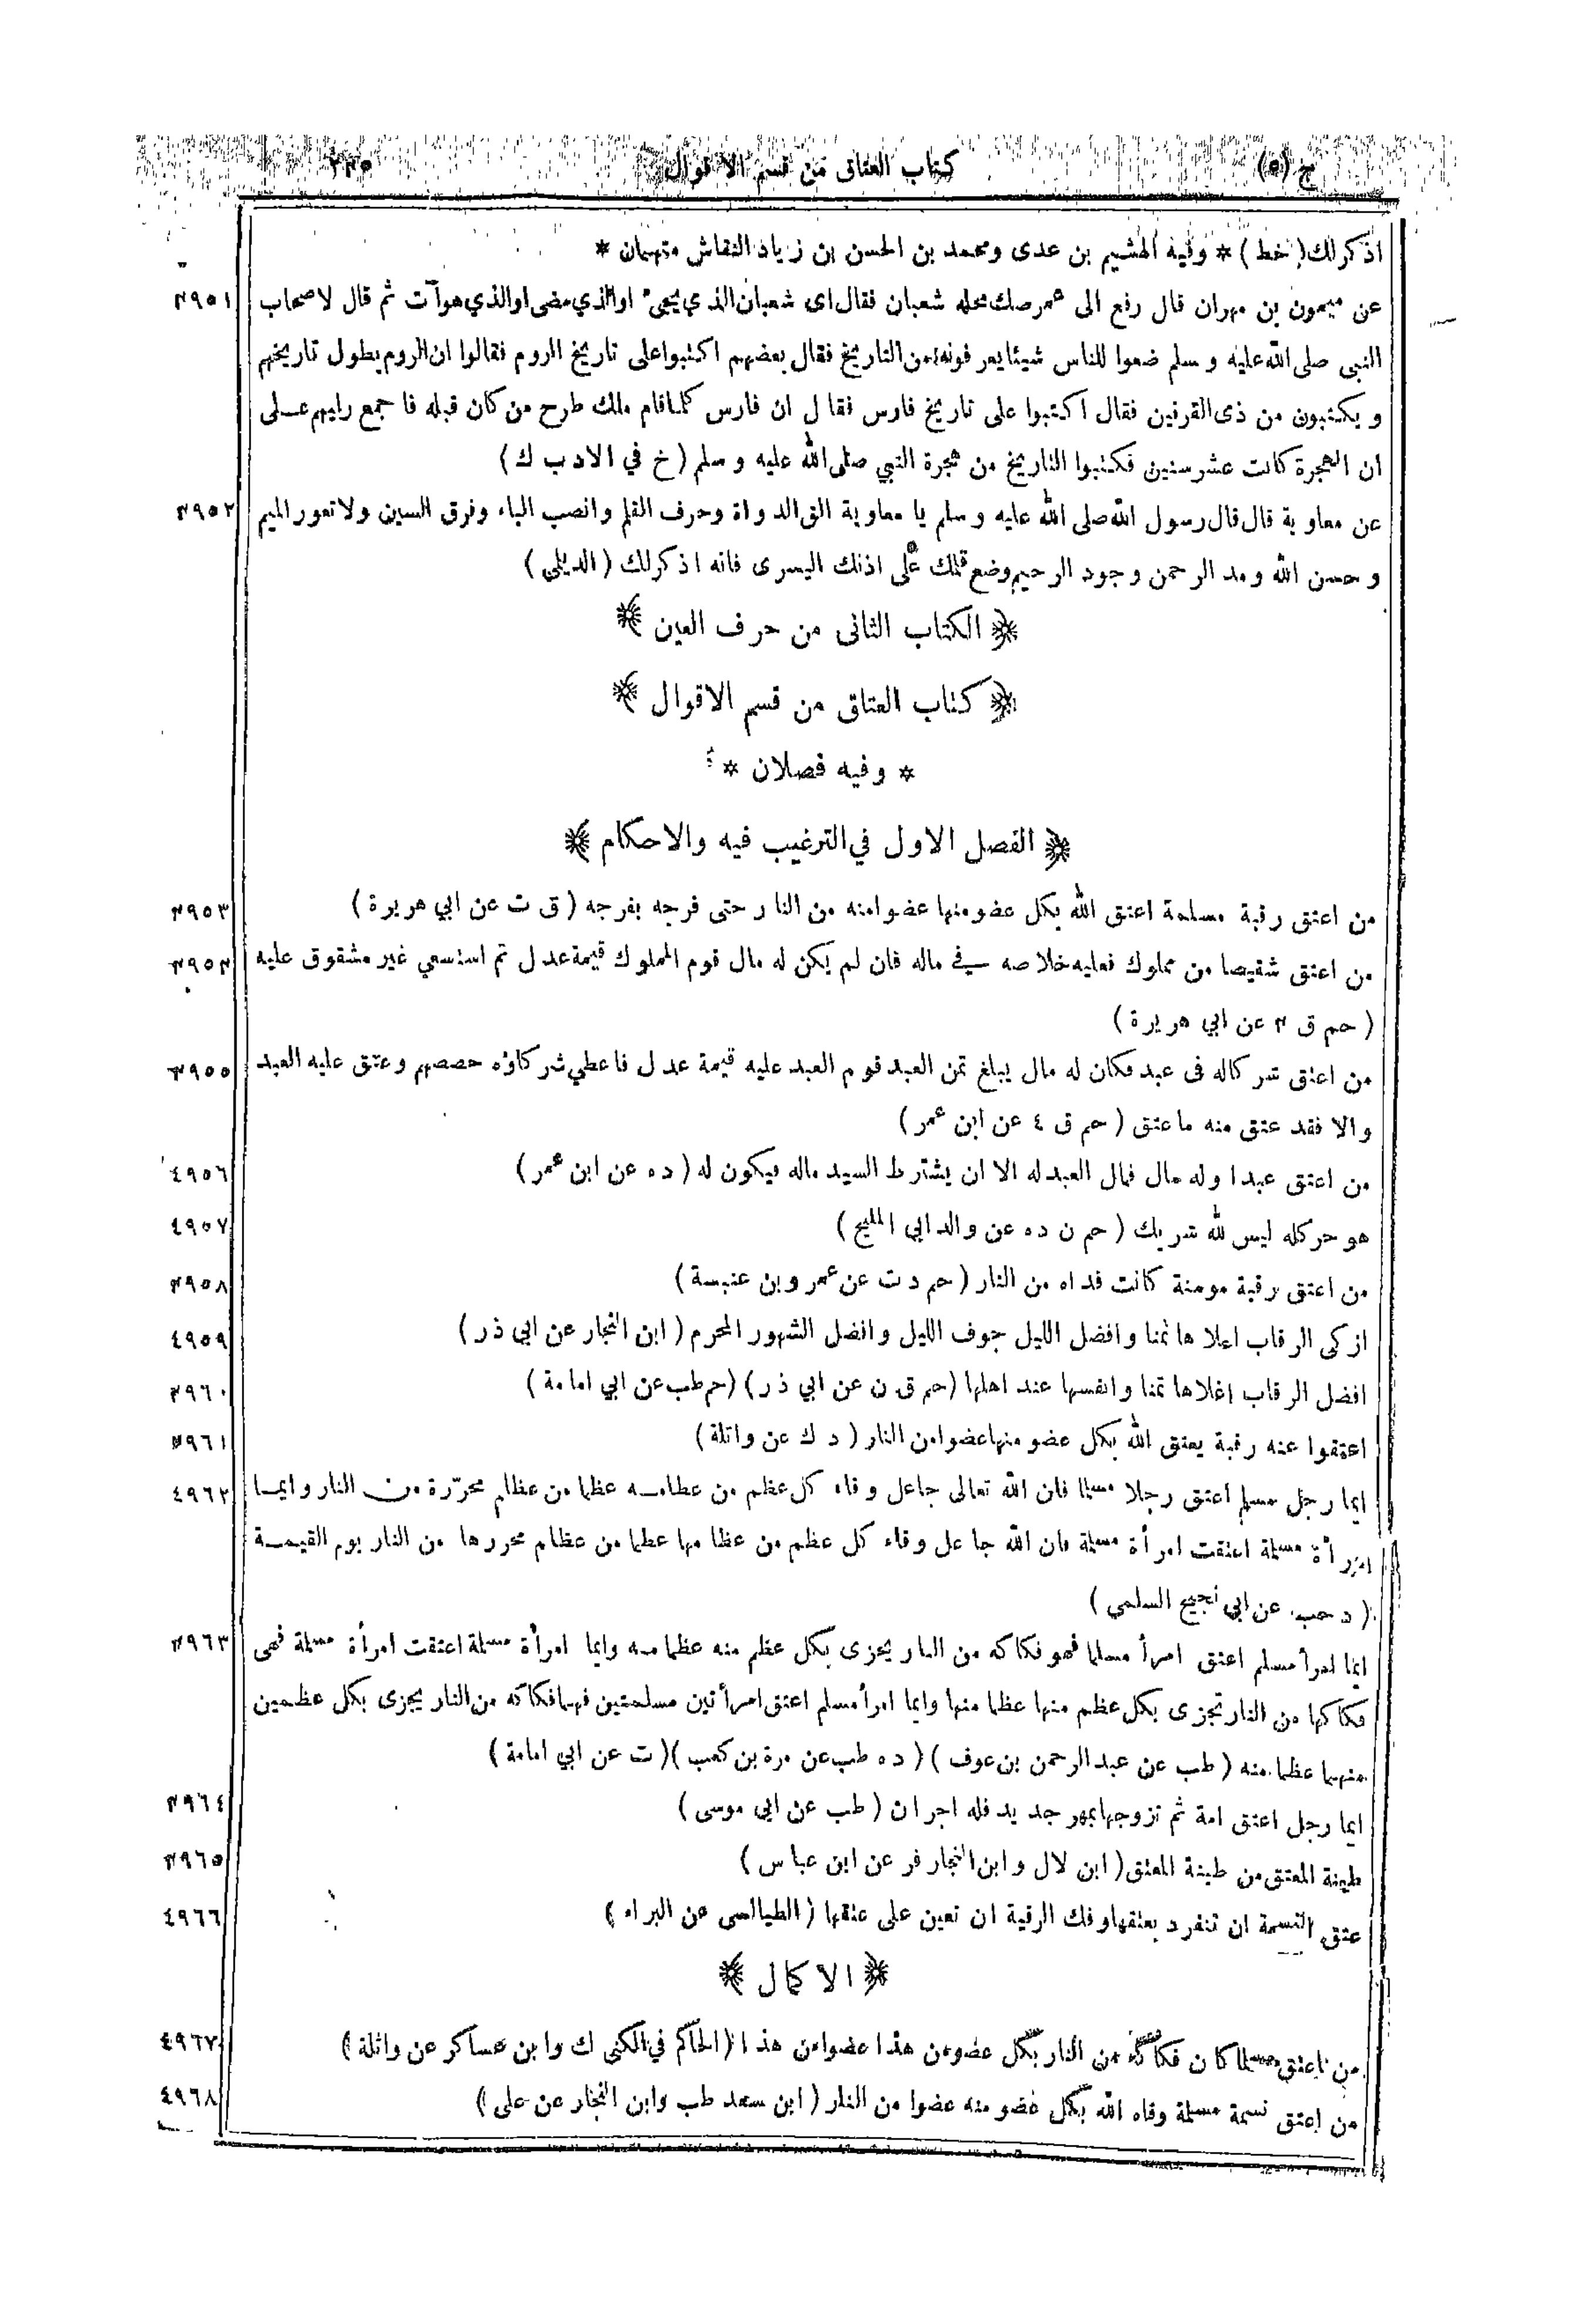 ج (٥) كتاب العتاق من قسم الاقوال ٢٣٥
اذكر لك (خط) * وفيه الهشيم بن عدى ومحمد بن الحسن بن زياد النقاش متهمان *
عن ميمون بن مهران قال رفع الى عمر صك محله شعبان فقال اى شعبان الذي يجىء او الذي مضى او الذي هو آت ثم قال لاصحاب ٤٩٥١
النبى صلى الله عليه وسلم ضعوا للناس شيئا يعرفونه من التاريخ فقال بعضهم اكتبوا على تاريخ الروم فقالوا ان الروم يطول تاريخهم
ويكتبون من ذى القرنين فقال اكتبوا على تاريخ فارس فقال ان فارس كلما قام ملك طرح من كان قبله فاجمع رايهم على
ان الهجرة كانت عشر سنين فكتبوا التاريخ من هجرة النبي صلى الله عليه وسلم (خ في الادب ك)
عن معاوية قال قال رسول الله صلى الله عليه وسلم يا معاوية الق الدواة وحرف القلم وانصب الباء وفرق السين ولا تعور الميم ٤٩٥٢
وحسن الله ومد الرحمن وجود الرحيم وضع قلمك على اذنك اليسرى فانه اذكر لك (الديلمى)
﴿ الكتاب الثانى من حرف العين ﴾
﴿ كتاب العتاق من قسم الاقوال ﴾
* وفيه فصلان *
﴿ الفصل الاول في الترغيب فيه والاحكام ﴾
من اعتق رقبة مسلمة اعتق الله بكل عضو منها عضوا منه من النار حتى فرجه بفرجه (ق ت عن ابي هريرة) ٤٩٥٣
من اعتق شقيصا من مملوك فعليه خلاصه في ماله فان لم يكن له مال قوم المملوك قيمة عدل ثم استسعي غير مشقوق عليه ٤٩٥٤
(حم ق ٤ عن ابي هريرة)
من اعتق شركا له فى عبد فكان له مال يبلغ ثمن العبد قوم العبد عليه قيمة عدل فاعطي شركاؤه حصصهم وعتق عليه العبد ٤٩٥٥
والا فقد عتق منه ما عتق (حم ق ٤ عن ابن عمر)
من اعتق عبدا وله مال فمال العبد له الا ان يشترط السيد ماله فيكون له (د ه عن ابن عمر) ٤٩٥٦
هو حر كله ليس لله شريك (حم ن د ه عن والد ابي المليح) ٤٩٥٧
من اعتق رقبة مومنة كانت فداه من النار (حم د ت عن عمرو بن عنبسة) ٤٩٥٨
ازكى الرقاب اعلاها ثمنا وافضل الليل جوف الليل وافضل الشهور المحرم (ابن النجار عن ابي ذر) ٤٩٥٩
افضل الرقاب اغلاها ثمنا وانفسها عند اهلها (حم ق ن عن ابي ذر) (حم طب عن ابي امامة) ٤٩٦٠
اعتقوا عنه رقبة يعتق الله بكل عضو منها عضوا من النار (د ك عن واثلة) ٤٩٦١
ايما رجل مسلم اعتق رجلا مسلما فان الله تعالى جاعل وقاء كل عظم من عظامه عظما من عظام محرره من النار وايما ٤٩٦٢
امرأة مسلمة اعتقت امرأة مسلمة فان الله جاعل وقاء كل عظم من عظامها عظما من عظام محررها من النار يوم القيمة
(د حب عن ابي نجيح السلمي)
ايما امرأ مسلم اعتق امرأ مسلما فهو فكاكه من النار يجزى بكل عظم منه عظما منه وايما امرأة مسلمة اعتقت امرأة مسلمة فهى ٤٩٦٣
فكاكها من النار تجزى بكل عظم منها عظما منها وايما امرأ مسلم اعتق امرأتين مسلمتين فهما فكاكه من النار يجزى بكل عظمين
منهما عظما منه (طب عن عبد الرحمن بن عوف) (د ه طب عن مرة بن كعب) (ت عن ابي امامة)
ايما رجل اعتق امة ثم تزوجها بمهر جديد فله اجران (طب عن ابي موسى) ٤٩٦٤
طينة المعتق من طينة المعتق (ابن لال وابن النجار فر عن ابن عباس) ٤٩٦٥
عتق النسمة ان تنفرد بعتقها وفك الرقبة ان تعين على عتقها (الطيالسى عن البراء) ٤٩٦٦
﴿ الاكمال ﴾
من اعتق مسلما كان فكاكه من النار بكل عضو من هذا عضوا من هذا (الحاكم في الكنى ك وابن عساكر عن واثلة) ٤٩٦٧
من اعتق نسمة مسلمة وقاه الله بكل عضو منه عضوا من النار (ابن سعد طب وابن النجار عن على) ٤٩٦٨